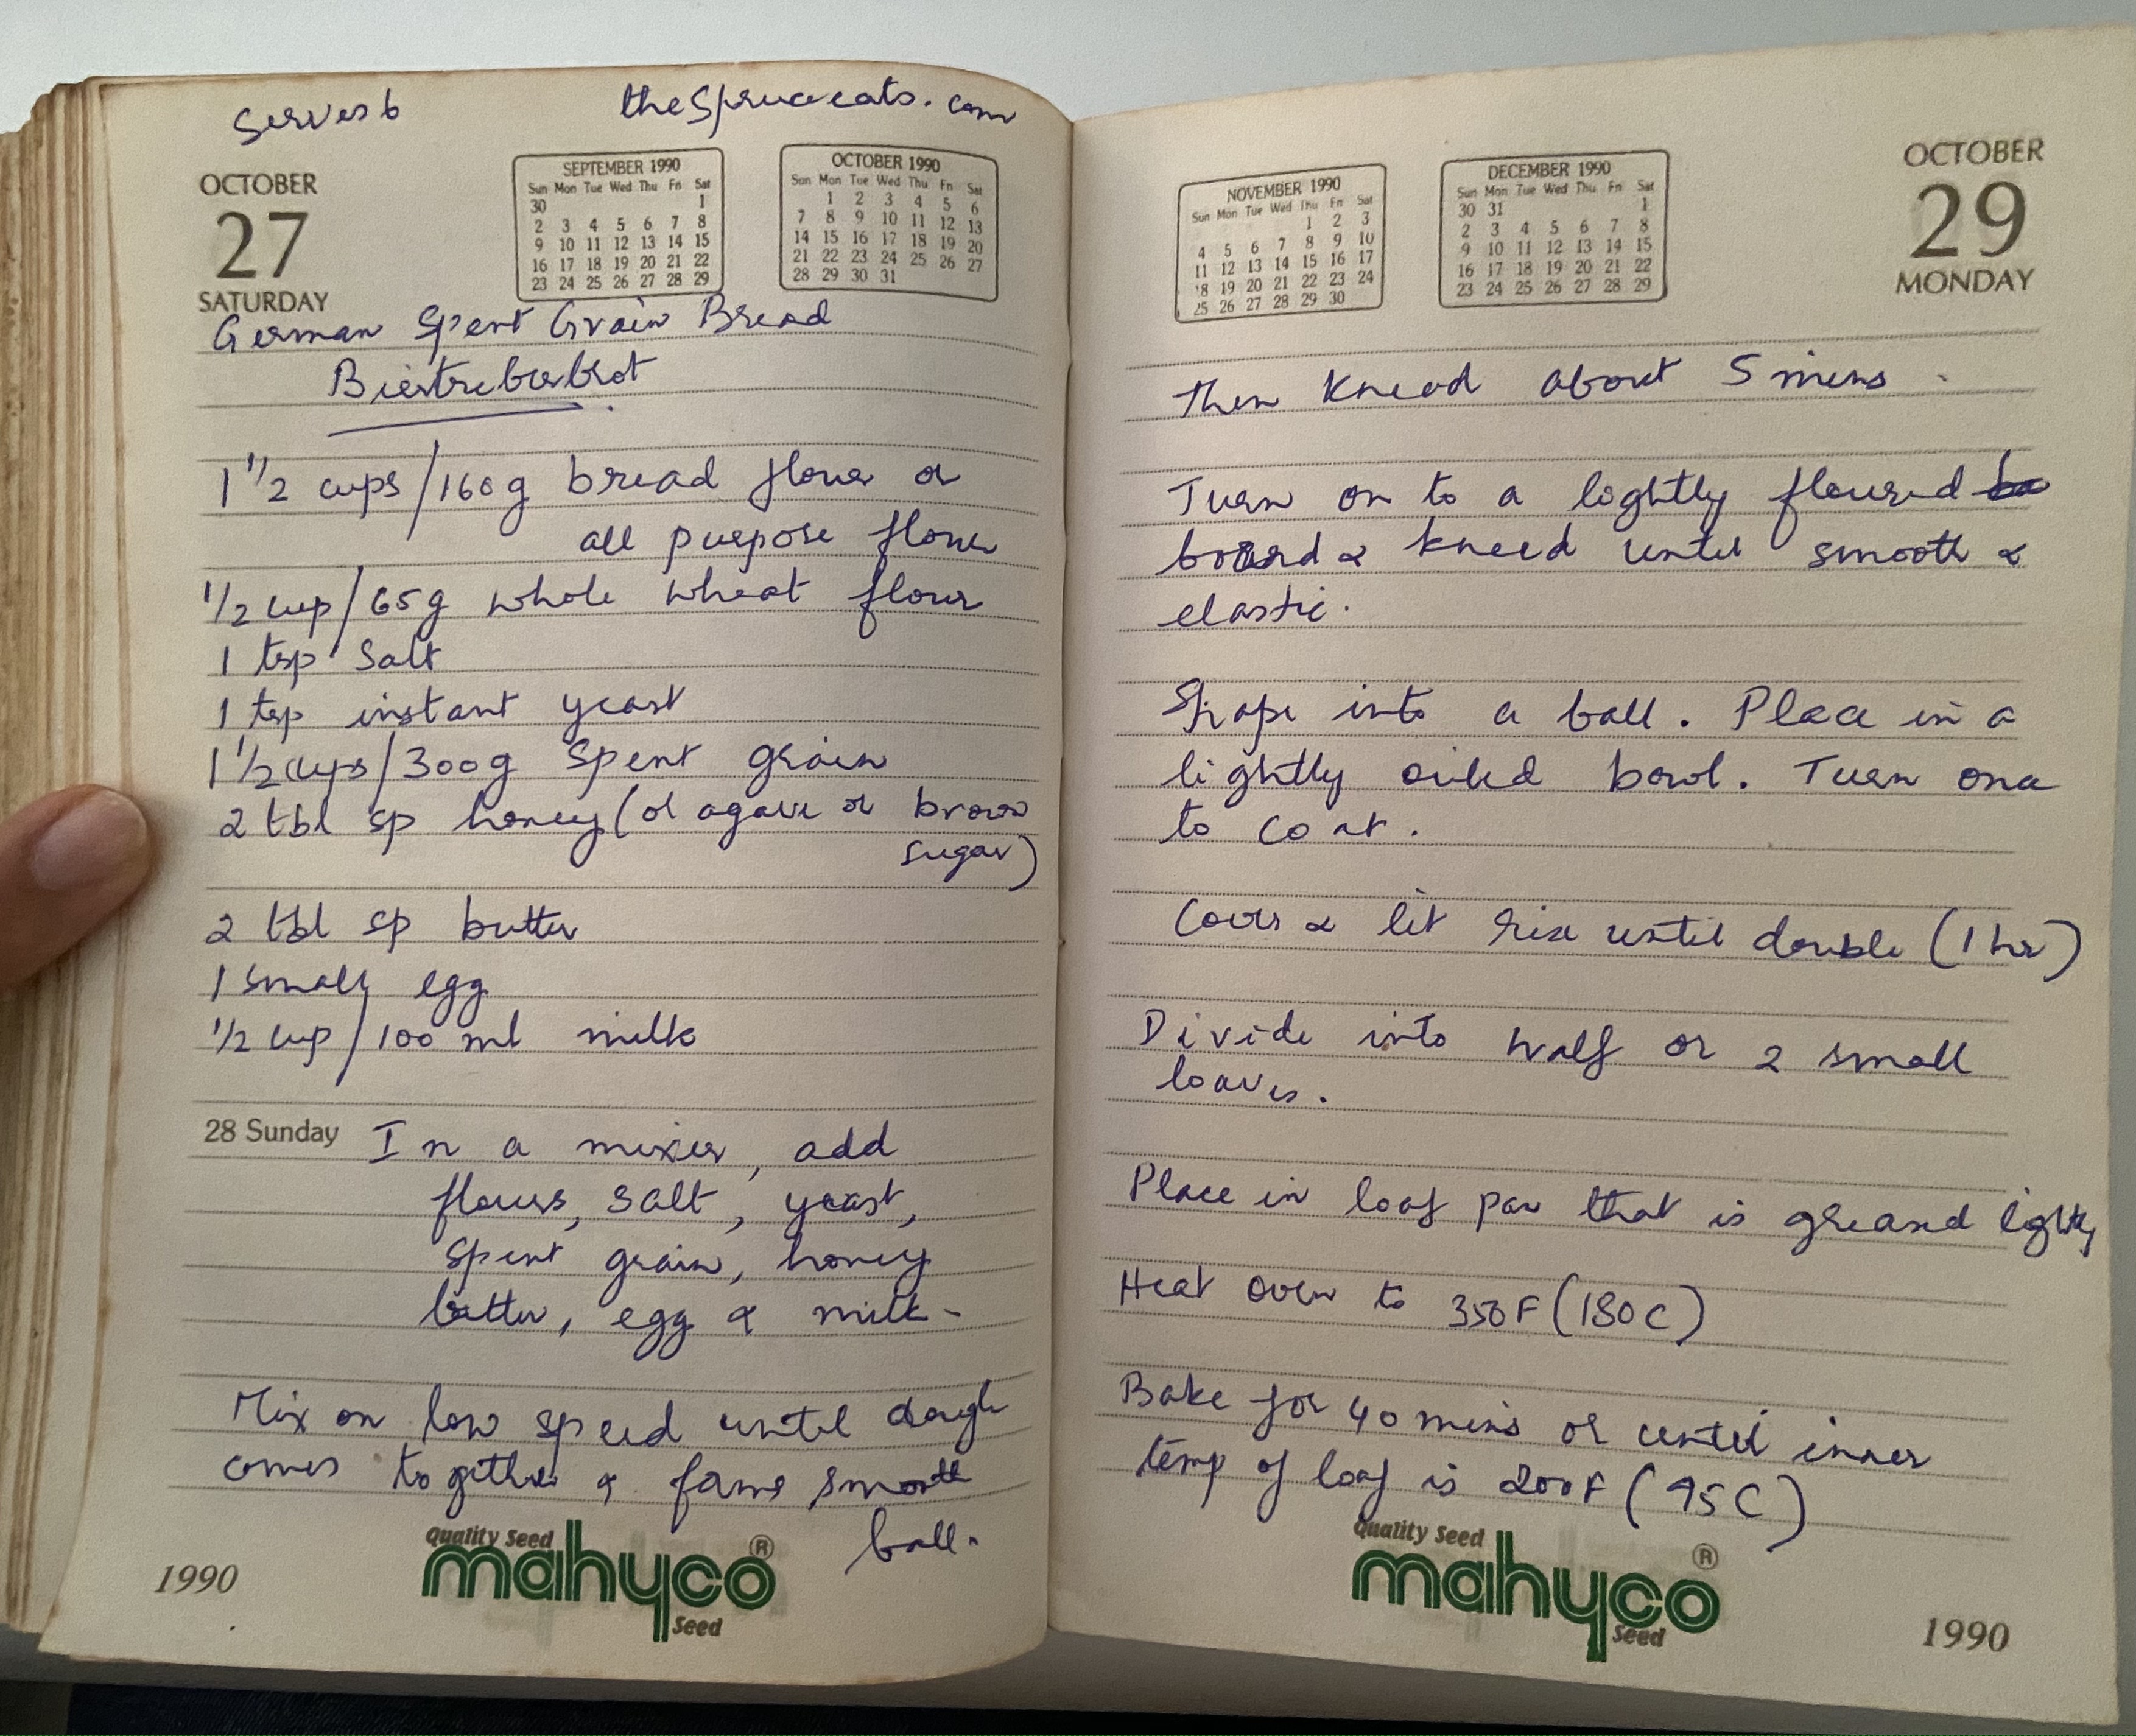 Serves 6 theSpruceeats.com
OCTOBER
27
SATURDAY
SEPTEMBER 1990
Sun Mon Tue Wed Thu Fri Sat
30 1
2 3 4 5 6 7 8
9 10 11 12 13 14 15
16 17 18 19 20 21 22
23 24 25 26 27 28 29
OCTOBER 1990
Sun Mon Tue Wed Thu Fri Sat
1 2 3 4 5 6
7 8 9 10 11 12 13
14 15 16 17 18 19 20
21 22 23 24 25 26 27
28 29 30 31
German Spent Grain Bread
Biertreberbrot
1 1/2 cups/160g bread flour or
all purpose flour
1/2 cup/65g whole wheat flour
1 tsp salt
1 tsp instant yeast
1 1/2 cups/300g spent grain
2 tbl sp honey (or agave or brown
sugar)
2 tbl sp butter
1 small egg
1/2 cup/100 ml milk
28 Sunday In a mixer, add
flours, salt, yeast,
spent grain, honey
butter, egg & milk-
Mix on low speed until dough
comes together & forms smooth
ball.
Quality Seed
mahyco ®
Seed
1990
NOVEMBER 1990
Sun Mon Tue Wed Thu Fri Sat
1 2 3
4 5 6 7 8 9 10
11 12 13 14 15 16 17
18 19 20 21 22 23 24
25 26 27 28 29 30
DECEMBER 1990
Sun Mon Tue Wed Thu Fri Sat
30 31 1
2 3 4 5 6 7 8
9 10 11 12 13 14 15
16 17 18 19 20 21 22
23 24 25 26 27 28 29
OCTOBER
29
MONDAY
Then knead about 5 mins.
Turn on to a lightly floured
board & kneed until smooth &
elastic.
Shape into a ball. Place in a
lightly oiled bowl. Turn once
to coat.
Cover & let rise until double (1 hr)
Divide into half or 2 small
loaves.
Place in loaf pan that is greased lightly
Heat oven to 350F (180C)
Bake for 40 mins or until inner
temp of loaf is 200F (95C)
Quality Seed
mahyco ®
Seed
1990